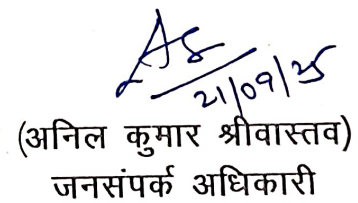 21/09/25
(अनिल कुमार श्रीवास्तव)
जनसंपर्क अधिकारी